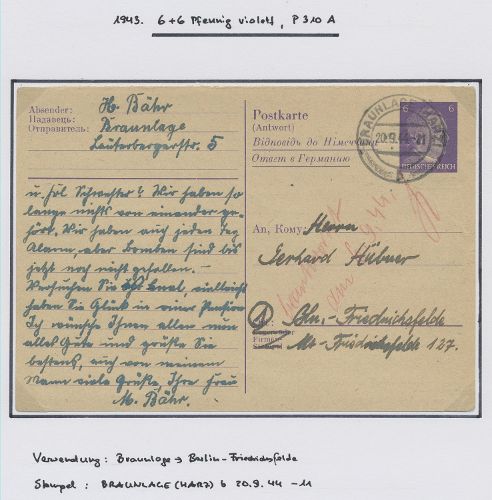 1943. 6+6 Pfennig violett, P 310 A
Absender:
Надавець:
Отправитель:
H. Bähr
Braunlage
Lauterbergerstr. 5
Postkarte
(Antwort)
Відповідь до Німеччини
Ответ в Германию
6 6
DEUTSCHES REICH
BRAUNLAGE (HARZ)
20.9.44-11
b
u. Schwester? Wir haben so
lange nichts von einander ge-
hört. Wir haben auch jeden Tag
Alarm, aber Bomben sind bis
jetzt noch nicht gefallen. –
Versuchen Sie mal, vielleicht
haben Sie Glück in einer Pension
Ich wünsche Ihnen allen nun
alles Gute und grüße Sie
bestens, auch von meinem
Mann viele Grüße, Ihre Frau
M. Bähr.
An, Кому: Herrn
Gerhard Hübner
Bln.-Friedrichsfelde
Alt-Friedrichsfelde 127.
Verwendung: Braunlage → Berlin-Friedrichsfelde
Stempel: BRAUNLAGE (HARZ) b 20.9.44 -11